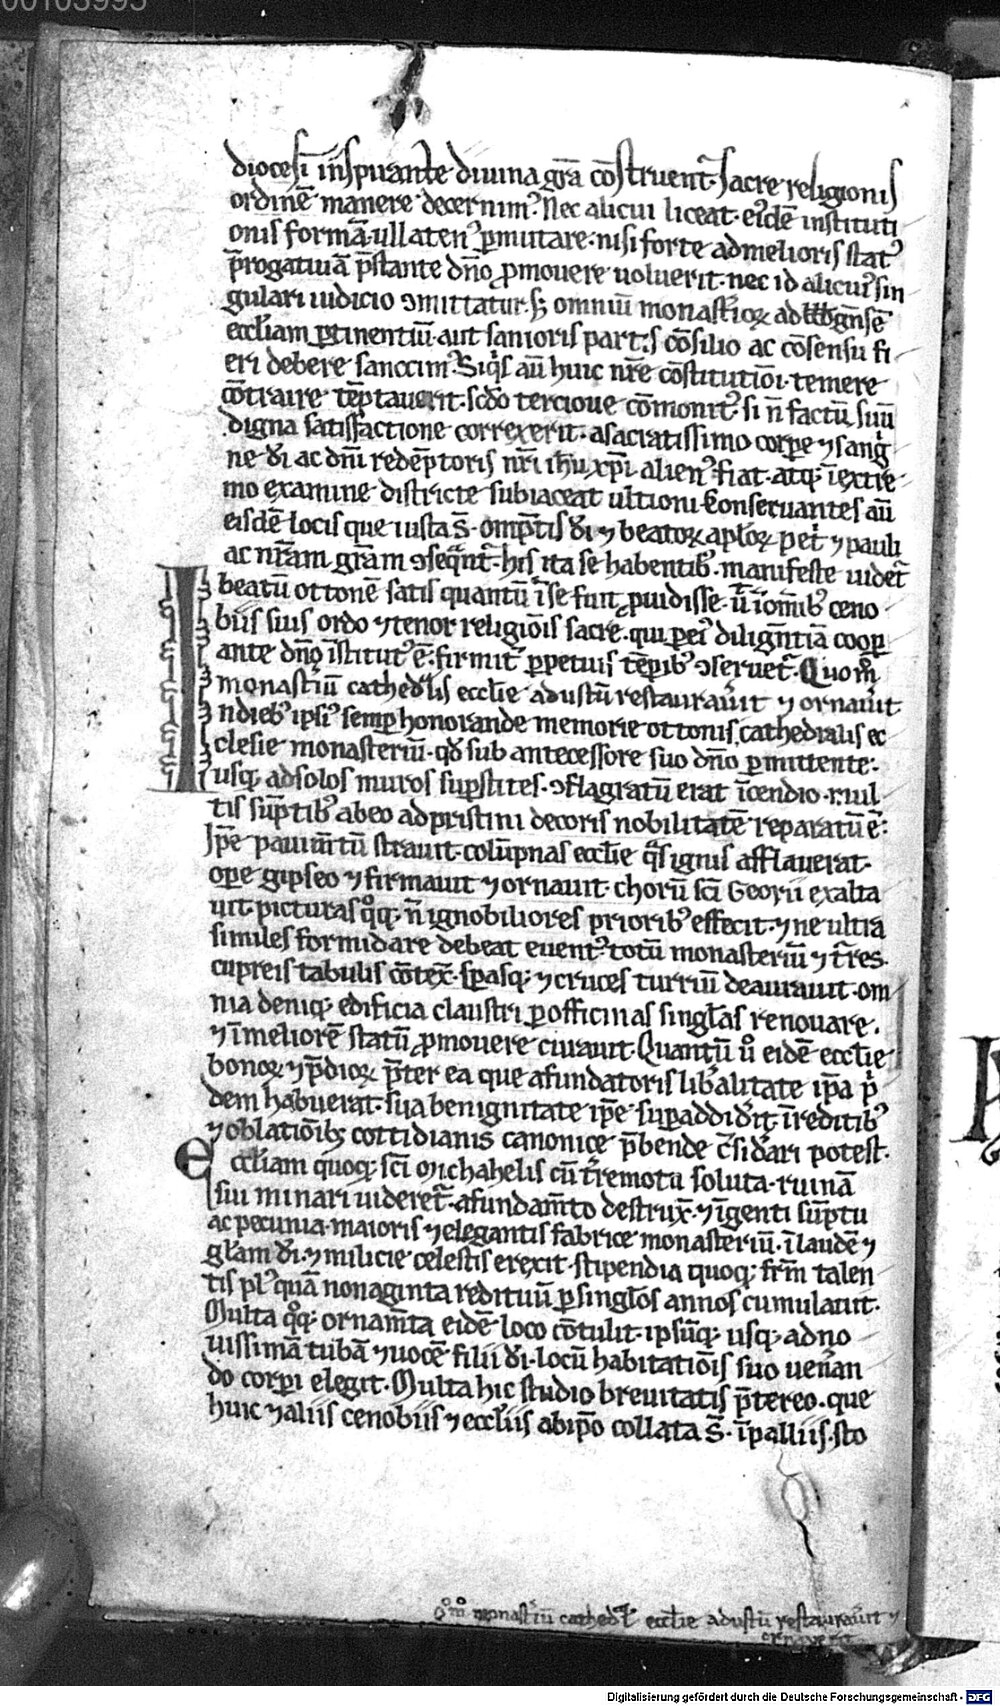 00103993
diocesī inspirante diuina grā cōstruent̄. sacre religionis
ordinē manere decernimꝰ. Nec alicui liceat. eiꝰdē instituti
onis formā. ullatenꝰ ꝑmutare. nisi forte ad melioris statꝰ
p̄rogatiuā p̄stante dn̄o ꝓmouere uoluerit. nec id alicuiꝰ sin
gulari iudicio ↄmittatur. s; omniū monastioꝝ ad gn̄sē
eccl̄iam ꝑtinentiū. aut sanioris partis cōsilio ac cōsensu fi
eri debere sanccimꝰ. Siq̄s aū huic nr̄e cōstitutiōi. temere
cōtraire tēptauerit. scd̄o tercioue cōmonitꝰ. si n̄ factū suū
digna satisfactione correxerit. a sacratissimo corꝑe ⁊ sang
ne d̄i ac dn̄i redēptoris nr̄i ih̄u xp̄i alienꝰ fiat. atq; ī extre
mo examine districte subiaceat ultioni. Conseruantes aū
eisdē locis que iusta s̄. omp̄tis d̄i ⁊ beatoꝝ ap̄loꝝ petⁱ ⁊ pauli
ac nr̄am gr̄am ↄseqn̄t̄. his ita se habentibꝰ. manifeste uidet̄
beatū ottonē satis quantū ī se fuit ꝓuidisse. ut̄ ī om̄ibꝰ ceno
biis suis ordo ⁊ tenor religiōis sacre. qui ꝑ eiꝰ dilign̄tiā cooꝑ
ante dn̄o īstitutꝰ ē. firmitꝰ ꝑpetuis tēp̄ibꝰ ↄseruet̄. Quom̊
monastiū cathedl̄is eccl̄ie adustū restaurauit ⁊ ornauit
Indiebꝰ ipsiꝰ semꝑ honorande memorie ottonis, cathedralis ec
clesie monasteriū. qd̄ sub antecessore suo dn̄o ꝑmittente.
usq; ad solos muros suꝑstites. ↄflagratū erat īcendio. mul
tis sūptibꝰ ab eo ad pristini decoris nobilitatē reparatū ē.
Ip̄e pauimt̄ū strauit. colūpnas eccl̄ie q̄s ignis afflauerat.
oꝑe gipseo ⁊ firmauit ⁊ ornauit. chorū sc̄i Georii exalta
uit. picturas q̊q; n̄ ignobiliores prioribꝰ effecit. ⁊ ne ultra
similes formidare debeat euentꝰ. totū monasteriū ⁊ tr̄res
cupreis tabulis cōtex̄. sꝑasq; ⁊ cruces turriū deaurauit. om
nia deniq; edificia claustri ꝑ officinas singl̄as renouare.
⁊ ī meliorē statū ꝓmouere curauit. Quantū ů eidē eccl̄ie
bonoꝝ ⁊ p̄dioꝝ p̄ter ea que a fundatoris lib̄alitate ip̄a pⁱ
dem habuerat. sua benignitate ip̄e suꝑaddid̄it. ī reditibꝰ
⁊ oblatiōibꝫ cottidianis canonice p̄bende c̄sid̄ari potest.
eccl̄iam quoq; sc̄i michahelis cū t̄remotu soluta. ruinā
sui minari uideret̄. a fundam̄to destrux̄. ⁊ īgenti sūptu
ac pecunia. maioris ⁊ elegantis fabrice monasteriū. ī laudē ⁊
gl̄am d̄i. ⁊ milicie celestis erexit. stipendia quoq; fr̄m talen
tis plꝰ quā nonaginta redituū ꝑ singl̄os annos cumulauit.
Multa q̊q; ornam̄ta eidē loco cōtulit. ipsūq; usq; ad no
uissimā tubā ⁊ uocē filii d̄i. locū habitatiōis suo ueñan
do corꝑi elegit. Multa hic studio breuitatis p̄tereo. que
huic ⁊ aliis cenobiis ⁊ eccl̄iis ab ip̄o collata s̄. ī palliis. sto
Q̊m̊ monastiū cathedl̄ eccl̄ie adustū restaurauit ⁊
ornauit
Digitalisierung gefördert durch die Deutsche Forschungsgemeinschaft - DFG